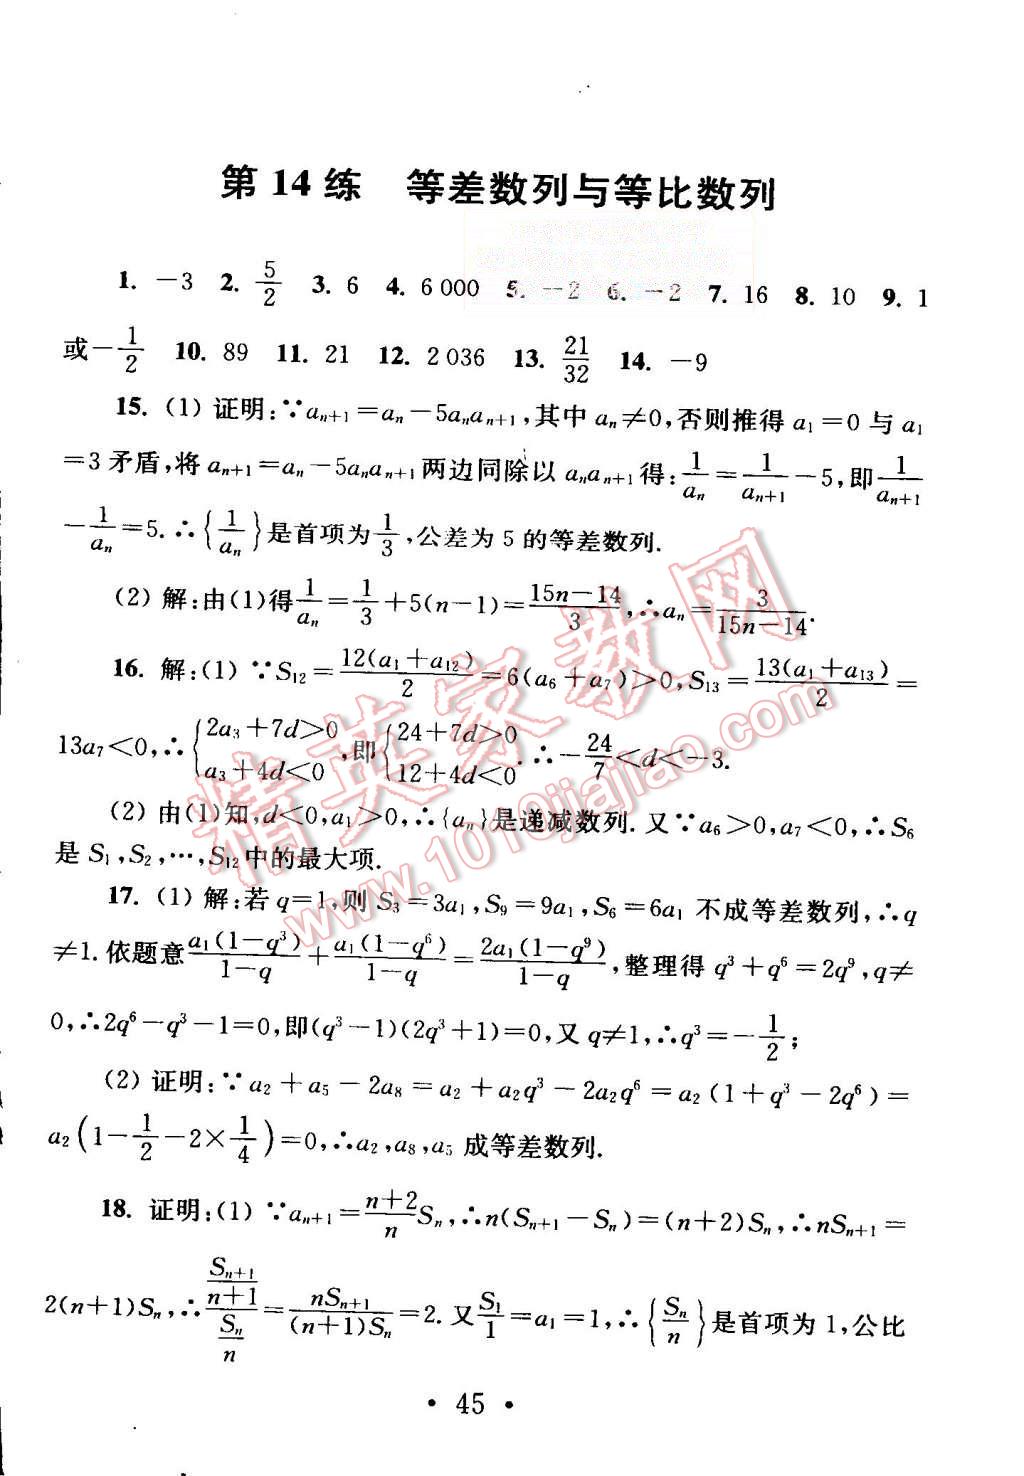 第 14 练 等差数列与等比数列
1. －3 2. 5/2 3. 6 4. 6 000 5. －2 6. －2 7. 16 8. 10 9. 1
或－1/2 10. 89 11. 21 12. 2 036 13. 21/32 14. －9
15. (1) 证明:∵aₙ₊₁＝aₙ－5aₙaₙ₊₁,其中 aₙ≠0,否则推得 a₁＝0 与 a₁
＝3 矛盾,将 aₙ₊₁＝aₙ－5aₙaₙ₊₁两边同除以 aₙaₙ₊₁得:1/aₙ＝1/aₙ₊₁－5,即1/aₙ₊₁
－1/aₙ＝5.∴{1/aₙ}是首项为1/3,公差为 5 的等差数列.
(2) 解:由(1)得1/aₙ＝1/3＋5(n－1)＝(15n－14)/3,∴aₙ＝3/(15n－14).
16. 解:(1) ∵S₁₂＝12(a₁＋a₁₂)/2＝6(a₆＋a₇)＞0,S₁₃＝13(a₁＋a₁₃)/2＝
13a₇＜0,∴{2a₃＋7d＞0 a₃＋4d＜0,即{24＋7d＞0 12＋4d＜0.∴－24/7＜d＜－3.
(2) 由(1)知,d＜0,a₁＞0,∴{aₙ}是递减数列.又∵a₆＞0,a₇＜0,∴S₆
是 S₁,S₂,…,S₁₂中的最大项.
17. (1) 解:若 q＝1,则 S₃＝3a₁,S₉＝9a₁,S₆＝6a₁ 不成等差数列,∴q
≠1.依题意a₁(1－q³)/(1－q)＋a₁(1－q⁶)/(1－q)＝2a₁(1－q⁹)/(1－q),整理得 q³＋q⁶＝2q⁹,q≠
0,∴2q⁶－q³－1＝0,即(q³－1)(2q³＋1)＝0,又 q≠1,∴q³＝－1/2;
(2) 证明:∵a₂＋a₅－2a₈＝a₂＋a₂q³－2a₂q⁶＝a₂(1＋q³－2q⁶)＝
a₂(1－1/2－2×1/4)＝0,∴a₂,a₈,a₅ 成等差数列.
18. 证明:(1) ∵aₙ₊₁＝(n＋2)/n Sₙ,∴n(Sₙ₊₁－Sₙ)＝(n＋2)Sₙ,∴nSₙ₊₁＝
2(n＋1)Sₙ,∴(Sₙ₊₁/(n＋1))/(Sₙ/n)＝nSₙ₊₁/((n＋1)Sₙ)＝2.又S₁/1＝a₁＝1,∴{Sₙ/n}是首项为 1,公比
• 45 •
精英家教网
www.1010jiajiao.com